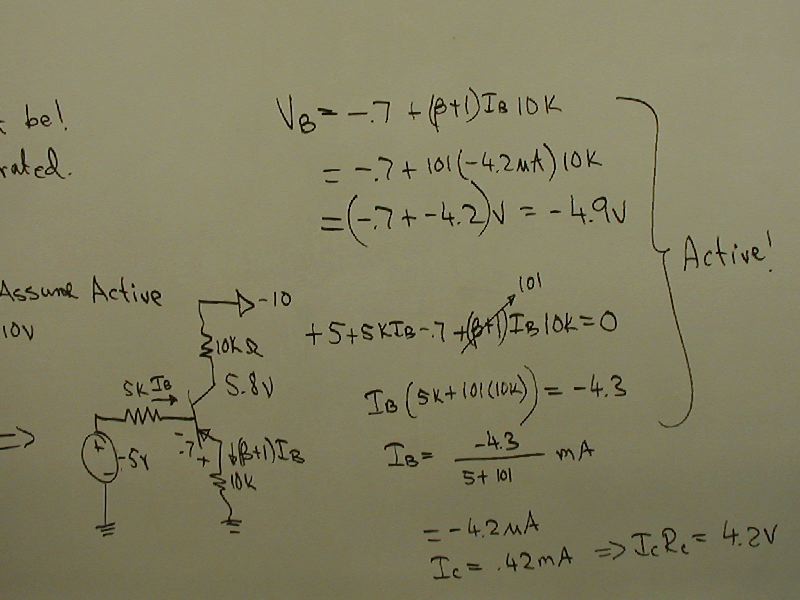 be!
rated.
V_B = -.7 + (β+1)I_B 10K
= -.7 + 101(-4.2μA)10K
= (-.7 + -4.2)V = -4.9V
Active!
Assume Active
10V
-10
10KΩ
5.8V
5K I_B
-5v
- .7 +
↓(β+1)I_B
10K
101
+5+5KI_B-.7+(β+1)I_B 10K=0
I_B(5K+101(10K)) = -4.3
I_B = -4.3 / 5+101 mA
= -4.2μA
I_C = .42mA ⇒ I_C R_C = 4.2V